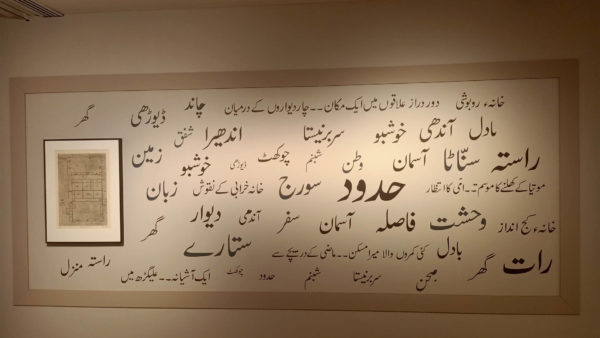 خانہء روپوشی دور دراز علاقوں میں ایک مکان۔۔چار دیواروں کے درمیان چاند ڈیوڑھی گھر
بادل آندھی خوشبو سربرنیستا اندھیرا شفق
راستہ سنّاٹا آسمان وطن شبنم چوکھٹ ڈیوڑھی خوشبو زمین
موتیا کے کھلنے کا موسم۔۔امی کا انتظار حدود سورج خانہ خرابی کے نقوش زبان
خانہء کج انداز وحشت فاصلہ آسمان سفر آندھی دیوار گھر
بادل کئی کمروں والا میرا مسکن۔۔ماضی کے دریچے سے ستارے
رات گھر صحن سربرنیستا شبنم حدود چوکھٹ ایک آشیانہ۔۔۔علیگڑھ میں راستہ منزل